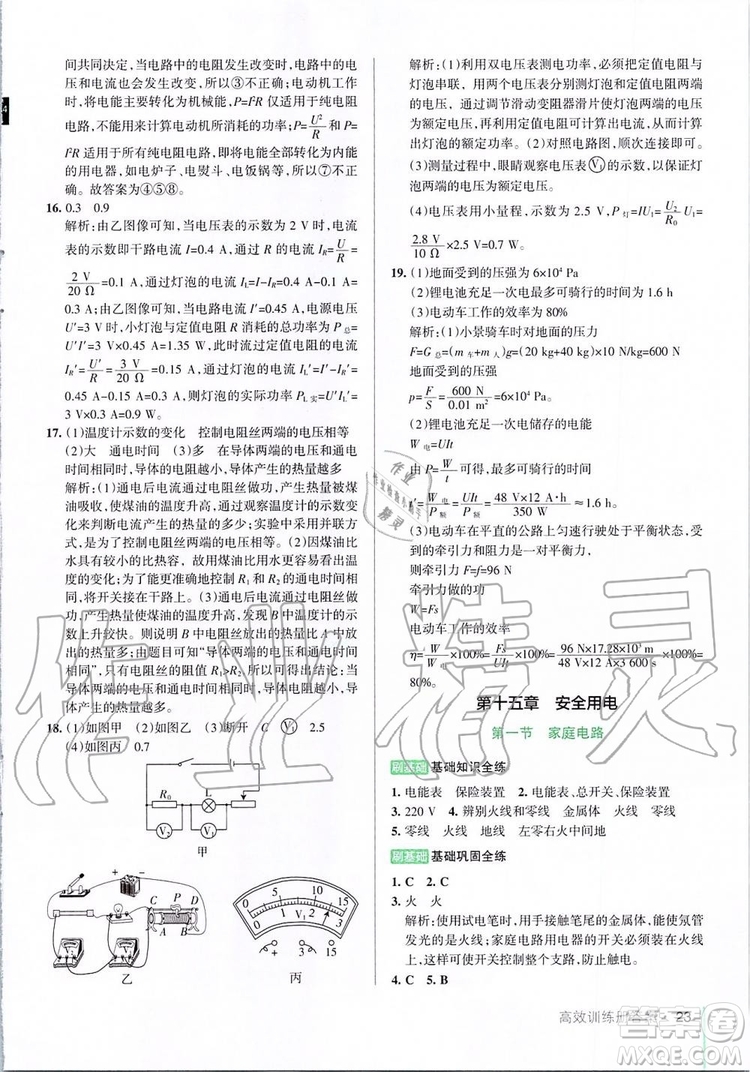 间共同决定，当电路中的电阻发生改变时，电路中的电
压和电流也会发生改变，所以③不正确；电动机工作
时，将电能主要转化为机械能，P=I²R仅适用于纯电阻
电路，不能用来计算电动机所消耗的功率；P=U²/R和P=
I²R适用于所有纯电阻电路，即电能全部转化为内能
的用电器，如电炉子、电熨斗、电饭锅等，所以⑥、⑦不
正确。故答案为④⑤⑧。
16. 0.3 0.9
解析：由乙图像可知，当电压表的示数为2 V时，电流
表的示数即干路电流I=0.4 A，通过R的电流I_R=U/R=
2 V/20 Ω=0.1 A，通过灯泡的电流I_L=I-I_R=0.4 A-0.1 A=
0.3 A；由乙图像可知，当电流I′=0.45 A时，电压
U′=3 V，此时，小灯泡与电阻R消耗的总功率P总=
U′I′=3 V×0.45 A=1.35 W，此时流过定值电阻的电流
I_R′=U′/R=3 V/20 Ω=0.15 A，通过灯泡的电流I_L′=I′-I_R′=
0.45 A-0.15 A=0.3 A，则灯泡的实际功率P_L实=U′I_L′=
3 V×0.3 A=0.9 W。
17. (1)温度计示数的变化 控制电阻丝两端的电压相等
(2)大 通电时间 (3)多 在导体两端的电压和通电
时间相同时，导体的电阻越小，导体产生的热量越多
解析：(1)通电后电流通过电阻丝做功，产生热量被煤
油吸收，使煤油的温度升高，故该实验是通过温度的变
化来判断电流产生的热量的多少；实验中将两电阻并
联，是为了控制电阻丝两端的电压相等。(2)因煤油比
水具有较小的比热容，故用煤油比用水更容易看出温
度的变化；为了能更准确地控制R₁和R₂的通电时间相
同，应将开关接在干路上。(3)通过电流通过电阻丝做
功，产生热量使煤油的温度升高，发现B中温度计的示
数上升较快。则说明B中电阻丝放出的热量比A中放
出的热量多；由题意可知，在导体两端的电压和通电时间
相同时，只有电阻丝的阻值R₁>R₂，所以得到的结论是：当
导体两端的电压和通电时间相同时，导体的电阻越小，导
体产生的热量越多。
18. (1)如图甲 (2)如图乙 (3)断开 C V₁ 2.5
(4)如图丙 0.7
R₀ L
V₂ V₁
甲
C P D
A B
乙
0 5 10 15
0 1 2 3
V
- 3 15
丙
解析：(1)利用双电压表测电功率，必须把定值电阻与
灯泡串联，用两个电压表分别测灯泡和定值电阻两端
的电压，通过调节滑动变阻器滑片使灯泡两端的电压
为额定电压，再由定值电阻可计算出额定电流，即可求
出灯泡的额定功率。(2)对照电路图，顺次连接即可。
(3)测量过程中，眼睛观察电压表V₁的示数，以保证灯
泡两端的电压为额定电压。
(4)电压表用小量程，示数为2.8 V，P灯=IU₁=U₂/R₀·U₁=
2.8 V/10 Ω×2.5 V=0.7 W。
19. (1)地面受到的压强为6×10⁴ Pa
(2)锂电池充足一次电最多可骑行的时间为1.6 h
(3)电动车工作的效率为80%
解析：(1)小景骑车时对地面的压力
F=G总=(m车+m人)g=(20 kg+40 kg)×10 N/kg=600 N
地面受到的压强
p=F/S=600 N/0.01 m²=6×10⁴ Pa。
(2)锂电池充足一次电储存的电能
W电=UIt
由P=W/t可得，可骑行的时间
t=W电/P额=UIt/P额=48 V×12 A·h/350 W≈1.6 h。
(3)电动车在平直的公路上匀速行驶处于平衡状态，受
到的牵引力和阻力是一对平衡力，
则牵引力F=f=96 N
牵引力做的功
W=Fs
电动车工作的效率
η=W/W电×100%=Fs/W电×100%=96 N×17.28×10³ m/48 V×12 A×3 600 s×100%=
80%。
第十五章 安全用电
第一节 家庭电路
刷基础 基础知识全练
1. 电能表 保险装置 2. 电能表、总开关、保险装置
3. 220 V 4. 辨别火线和零线 金属体 火线 零线
5. 零线 火线 地线 左零右火中间地
刷基础 基础巩固全练
1. C 2. C
3. 火 火
解析：使用试电笔时，用手接触笔尾的金属体，能使氖管
发光的是火线；家庭电路用电器的开关必须接在火线
上，这样可使开关控制整个支路，防止触电。
4. C 5. B
高效训练册答案 23
作业精灵
答案圈
MXQE.COM